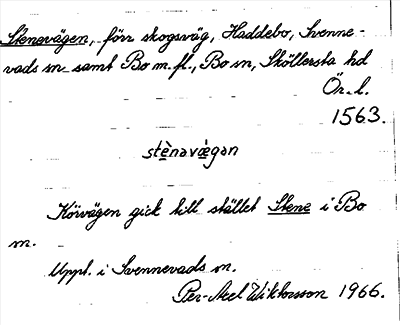 Stenevägen, förr skogsväg, Haddebo, Svenne-
vads sn samt Bo m. fl., Bo sn, Sköllersta hd
Ör. l.
1563.
stènavä̀gan
Körvägen gick till stället Stene i Bo
sn.
Uppt. i Svennevads sn.
Per-Axel Wiktorsson 1966.